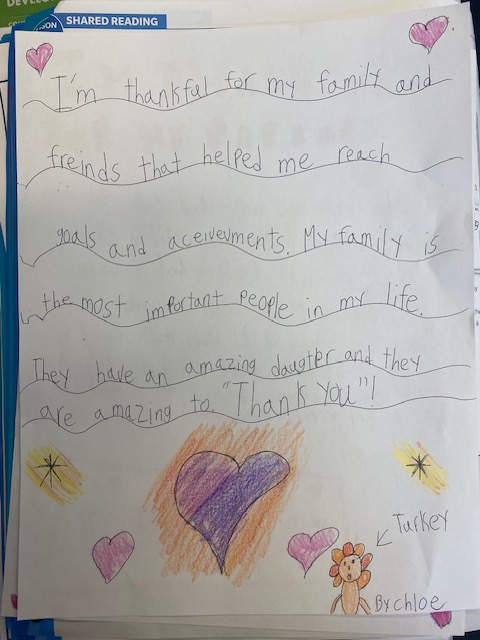 DEVELO
SON
SHARED READING
I'm thankful for my family and
freinds that helped me reach
goals and aceivevments. My family is
the most important people in my life.
They have an amazing daugter and they
are amazing to. "Thank you"!
Turkey
By chloe